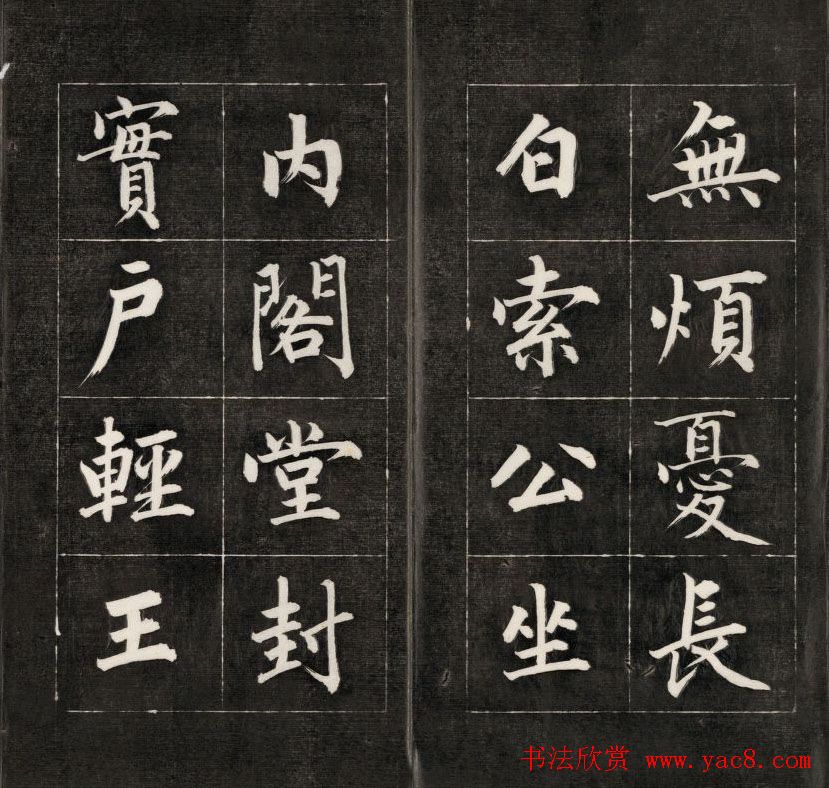 無煩憂長
白索公坐
内閣堂封
實戶輕王
书法欣赏 www.yac8.com